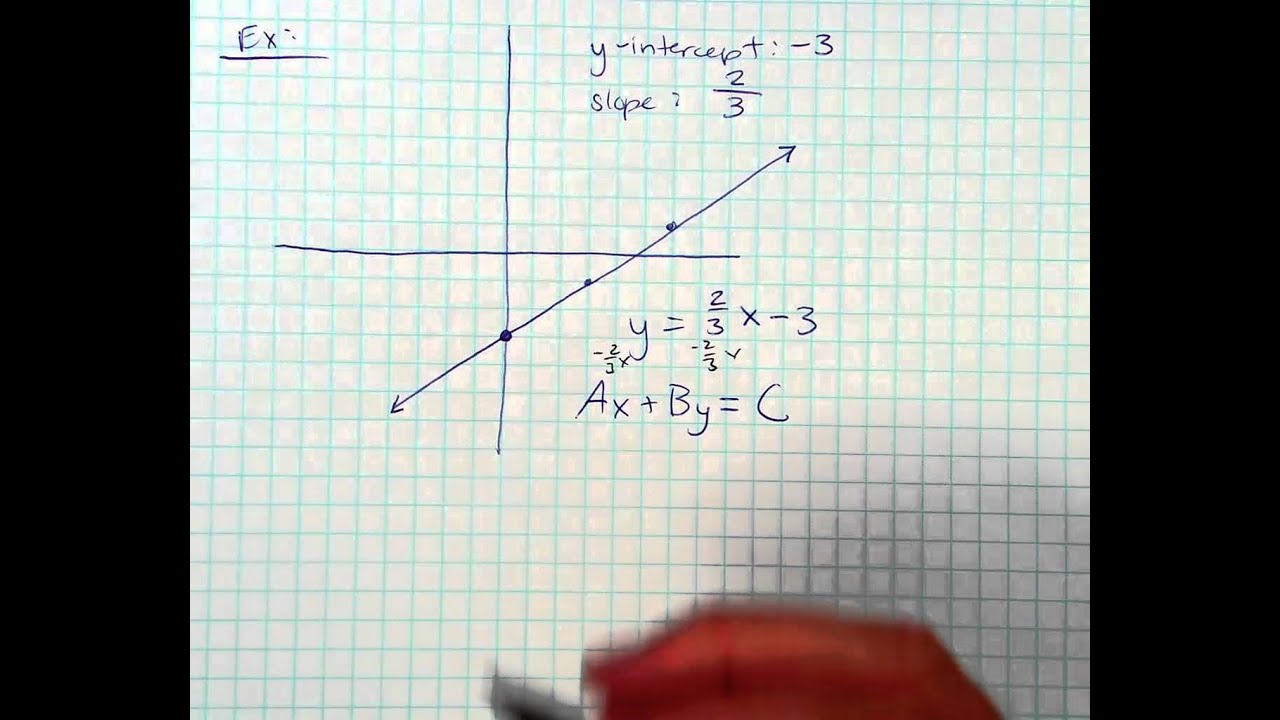 Ex:
y-intercept: -3
slope: 2/3
y = 2/3 x - 3
-2/3 x -2/3 x
Ax + By = C